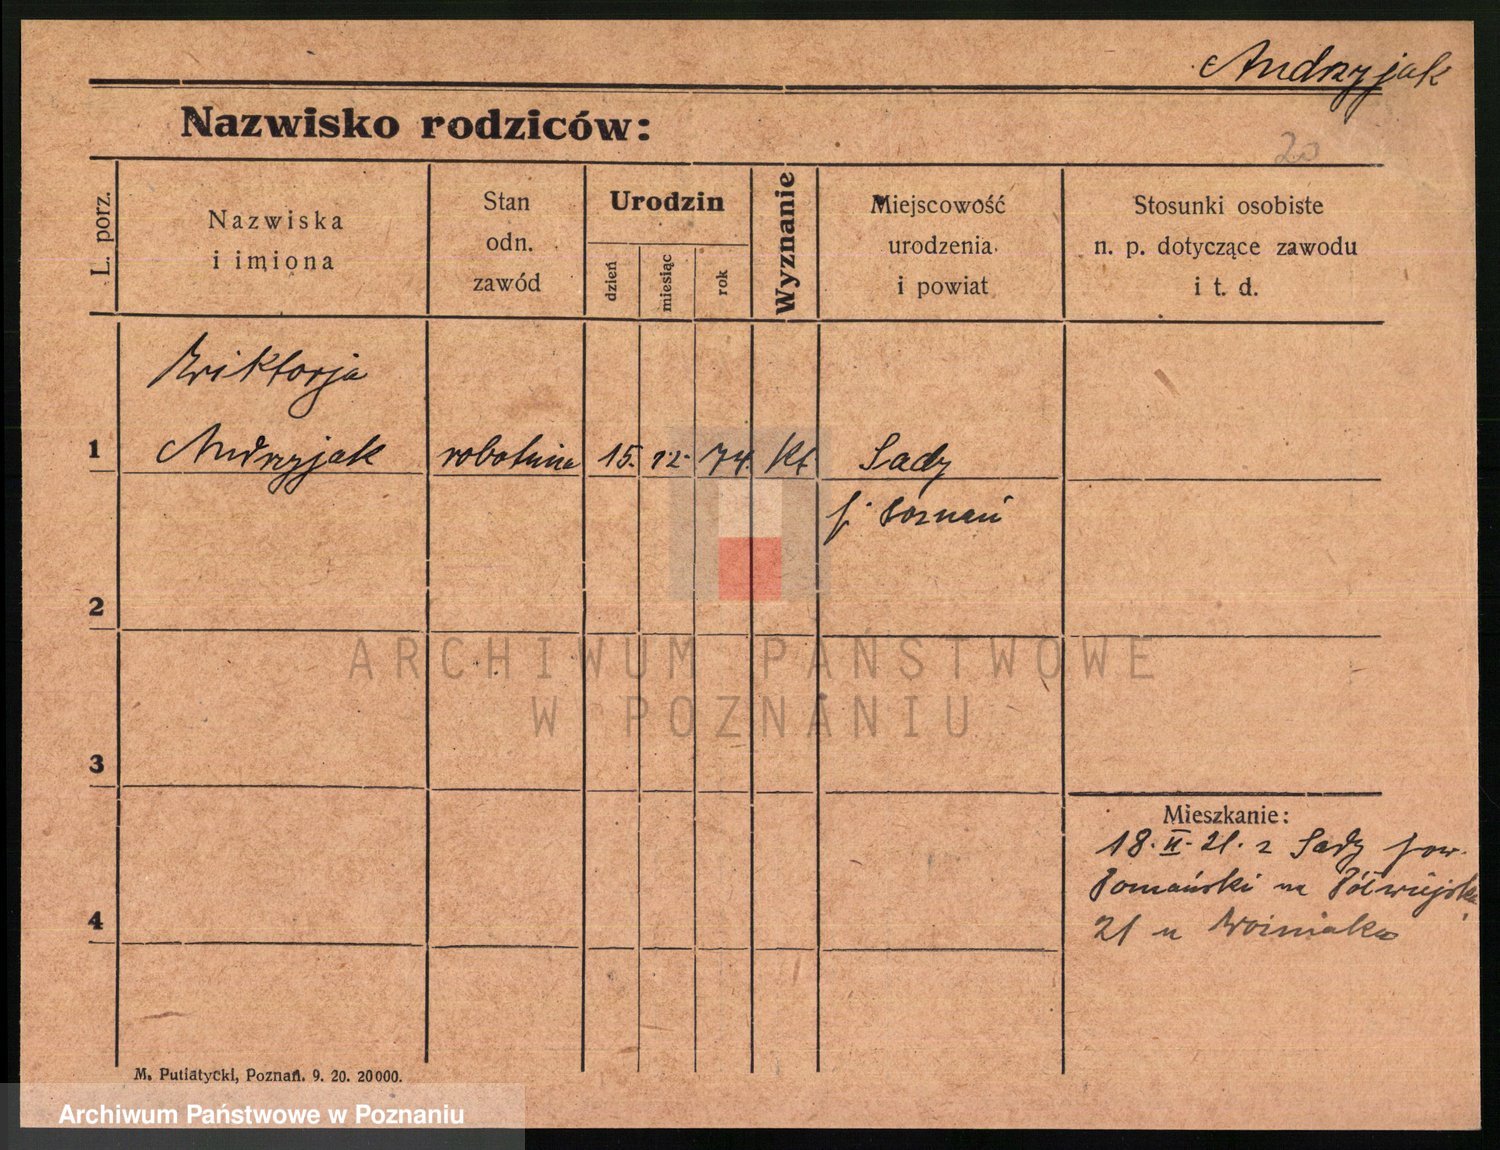 Andrzyjak
Nazwisko rodziców:
20
L. porz.
Nazwiska
i imiona
Stan
odn.
zawód
Urodzin
dzień
miesiąc
rok
Wyznanie
Miejscowość
urodzenia
i powiat
Stosunki osobiste
n. p. dotyczące zawodu
i t. d.
Wiktorja
1 Andrzyjak robotnica 15. 12. 74. Kt. Sady
p. Poznań
2
ARCHIWUM PAŃSTWOWE
W POZNANIU
3
Mieszkanie:
18. II. 21. z Sady pow.
Poznański na Półwiejska
4
21 u Woźniaka
M. Putiatycki, Poznań. 9. 20. 20000.
Archiwum Państwowe w Poznaniu